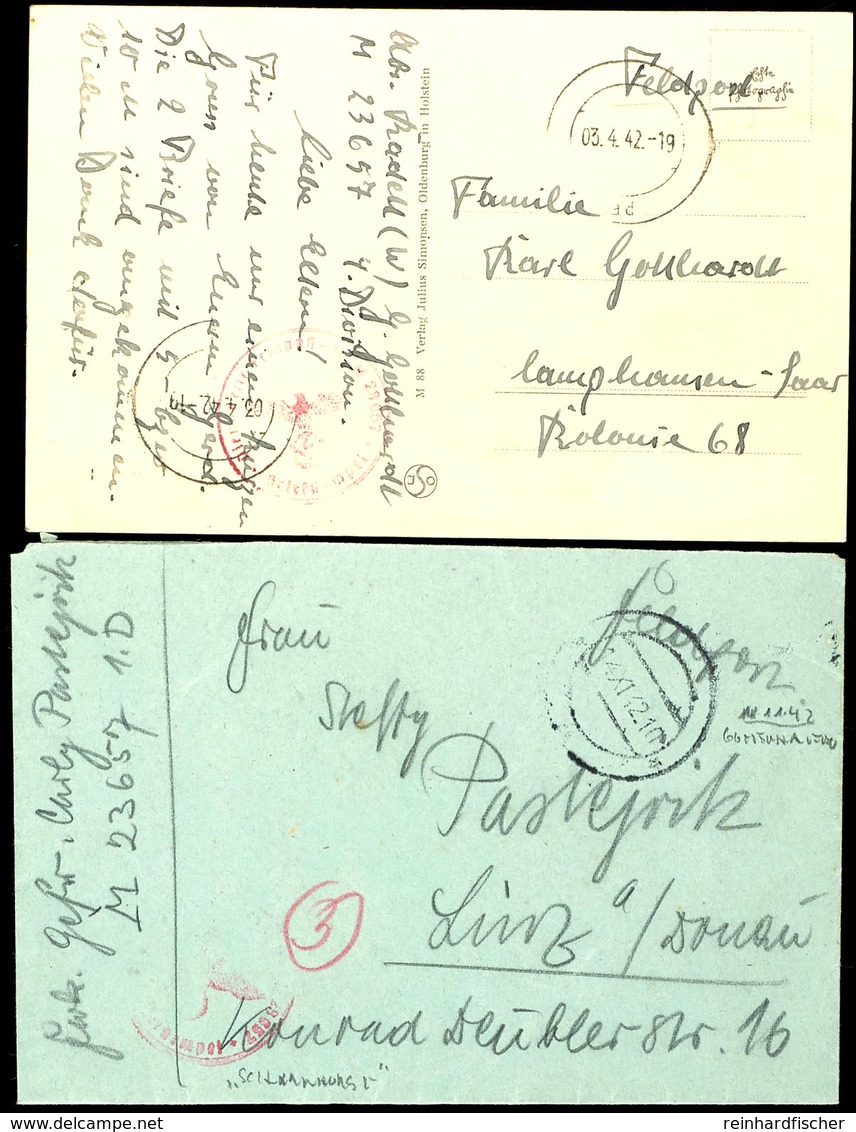 Feldpost
Echte
Photographie
03.4.42.-19
Familie
Karl Gotthardt
Camphausen-Saar
Kolonie 68
M 88 Verlag Julius Simonsen, Oldenburg in Holstein
Abs. Kadett (W) G. Gotthardt
M 23657 4. Division.
Liebe Eltern!
Für heute nur einen kurzen
Gruss von Euerm Gerd.
Die 2 Briefe mit
10 M sind angekommen.
Vielen Dank dafür.
03.4.42.-19
Feldpost
Frau
Steffy
Pastejrik
Linz a/Donau
Konrad Deubler Str. 16
Gefr. Carly Pastejrik
M 23657 1.D
3
11.42
GOTENHAFEN
"SCHARNHORST"
reinhardfischer